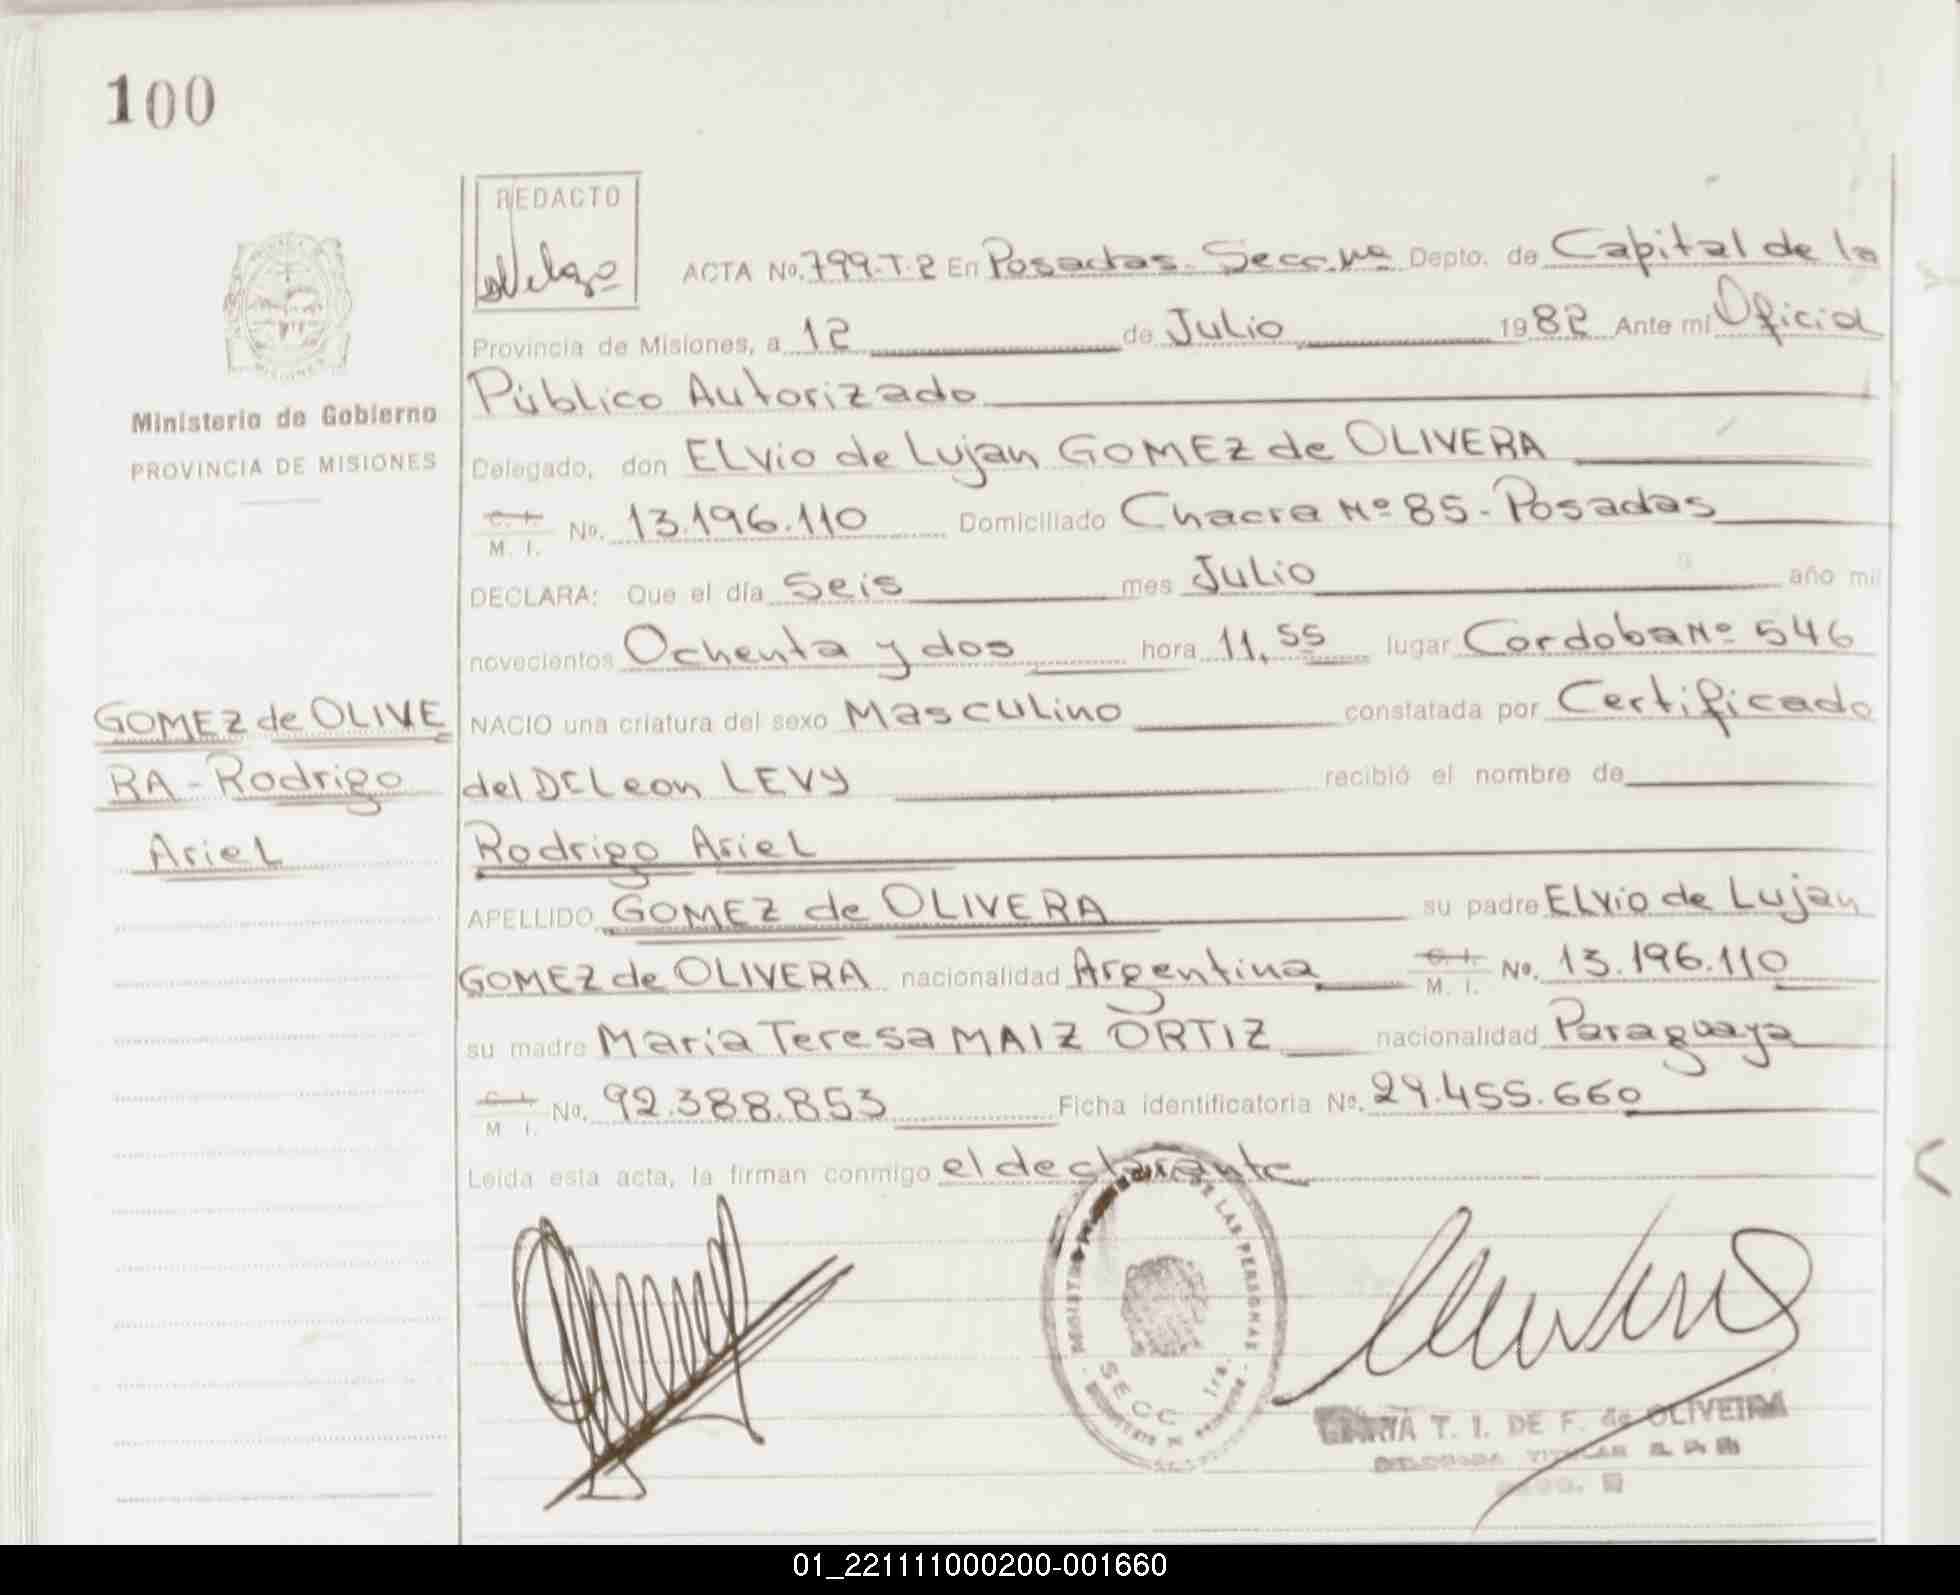 100
REDACTO
ACTA No. 799-T-2 En Posadas. Secc. 1ra Depto. de Capital de la
Provincia de Misiones, a 12 de Julio 1982 Ante mi Oficial
Público Autorizado
Ministerio de Gobierno
PROVINCIA DE MISIONES
Delegado, don ELvio de Lujan GOMEZ de OLIVERA
C. I.
M. I. No. 13.196.110 Domiciliado Chacra Nº 85 - Posadas
DECLARA: Que el día Seis mes Julio año mil
novecientos Ochenta y dos hora 11,55 lugar Cordoba Nº 546
GOMEZ de OLIVE
RA - Rodrigo
Ariel
NACIO una criatura del sexo Masculino constatada por Certificado
del Dr Leon LEVY recibió el nombre de
Rodrigo Ariel
APELLIDO GOMEZ de OLIVERA su padre ELvio de Lujan
GOMEZ de OLIVERA nacionalidad Argentina C. I. M. I. No. 13.196.110
su madre Maria Teresa MAIZ ORTIZ nacionalidad Paraguaya
C. I.
M. I. No. 92.388.853 Ficha identificatoria No. 29.455.660
Leída esta acta, la firman conmigo el declarante
REGISTRO DE LAS PERSONAS
SECC 1ra.
T. I. DE F. de OLIVEIRA
01_221111000200-001660